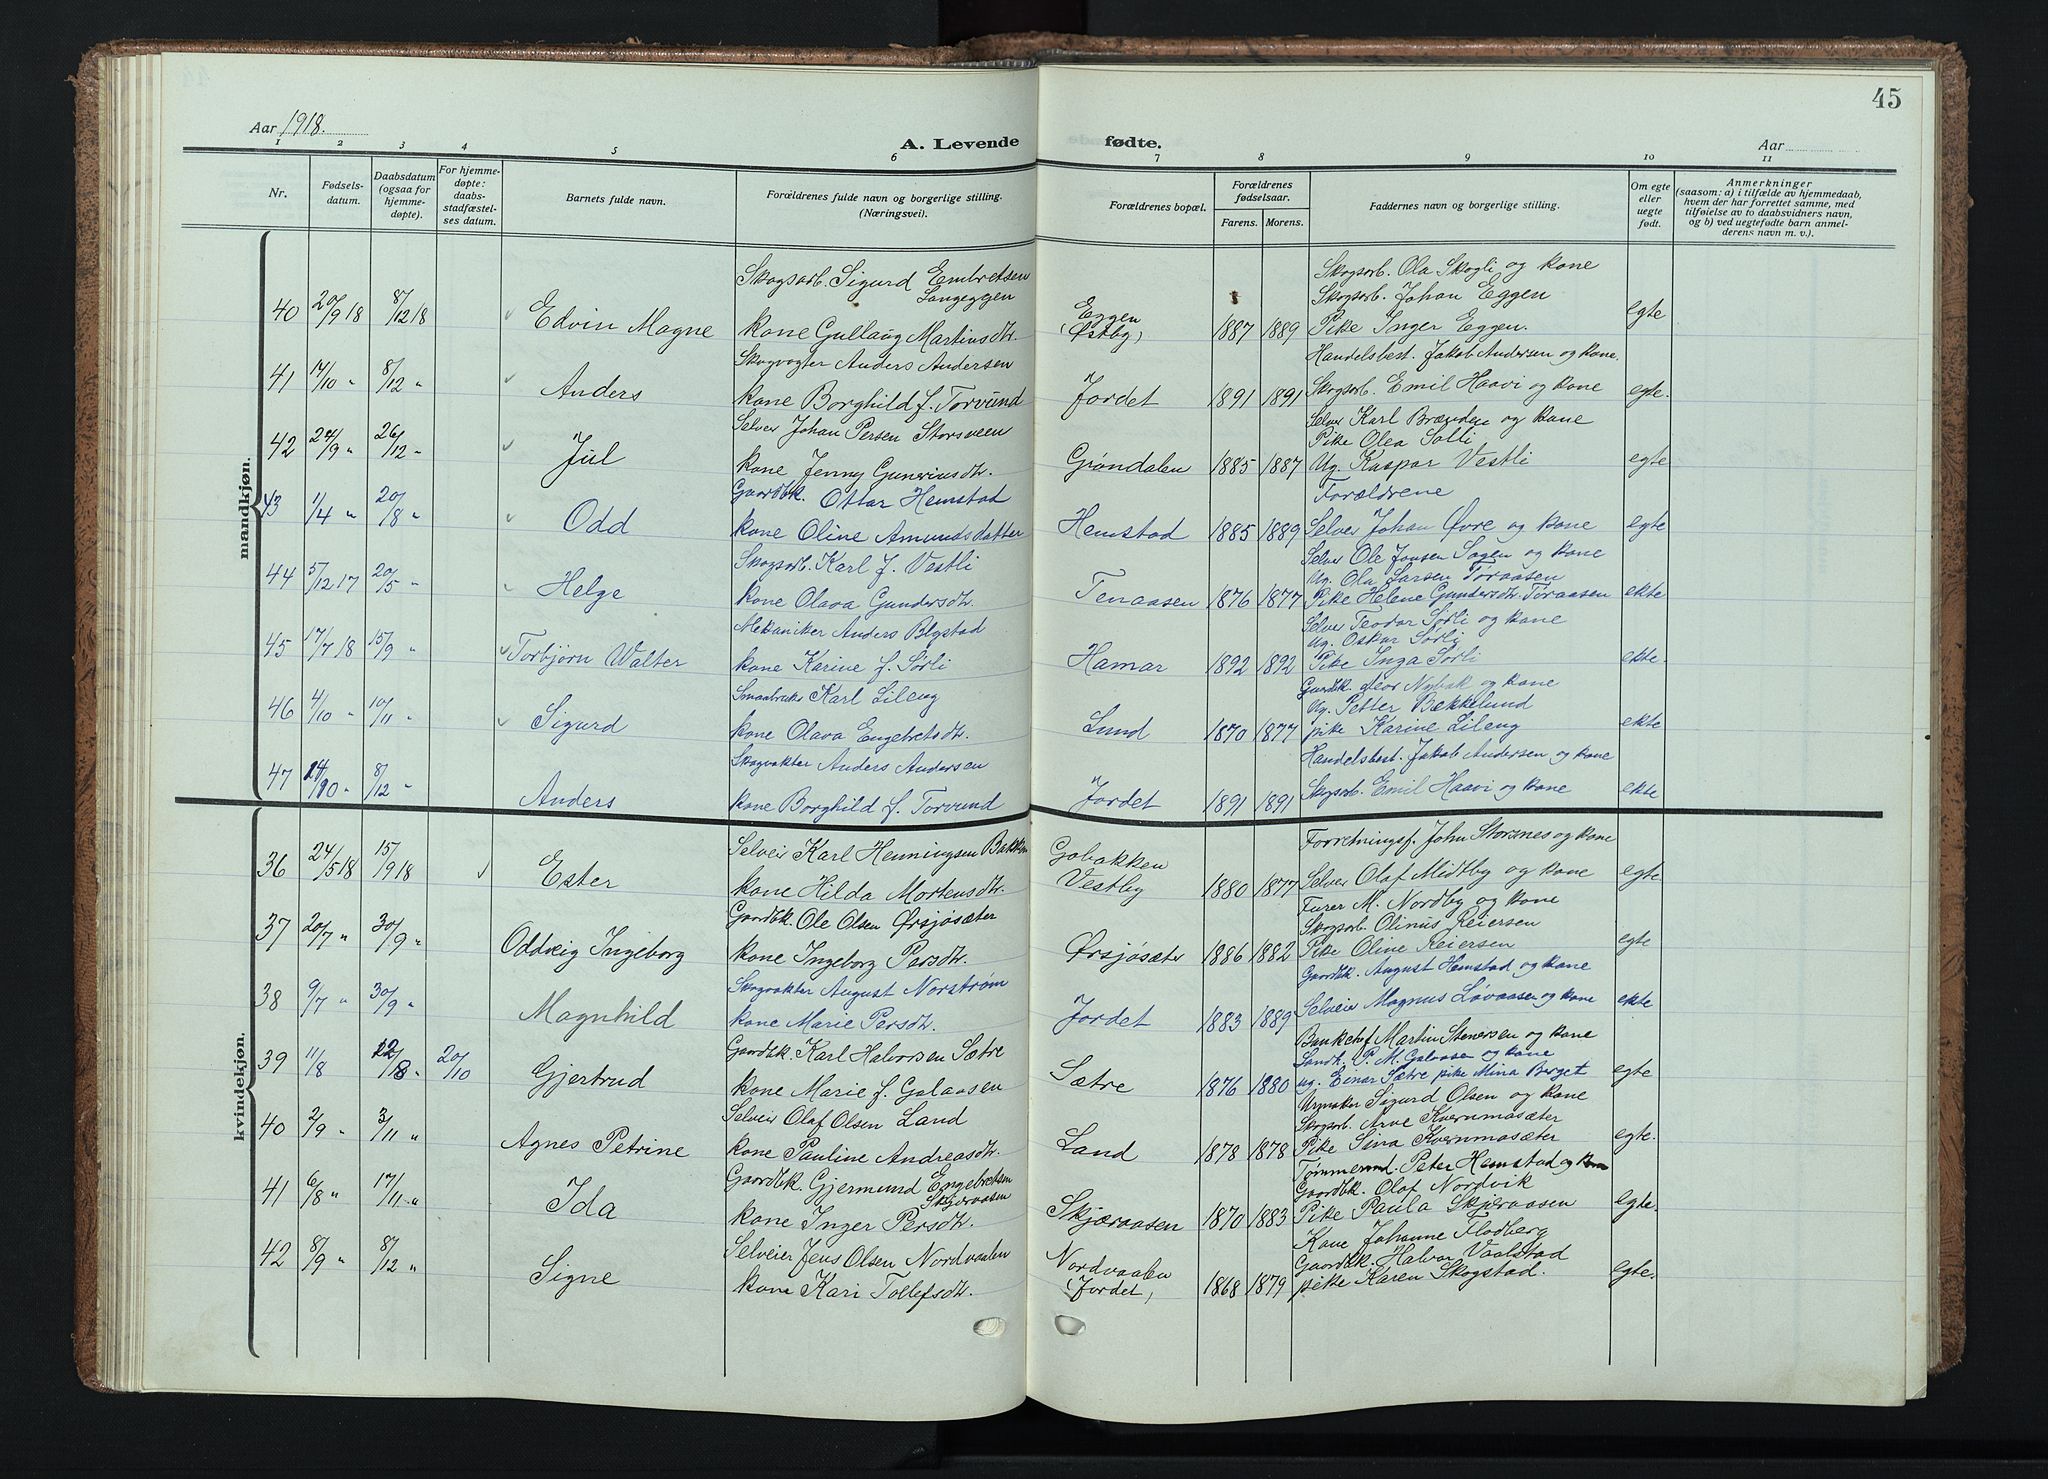 45
Aar 1918.
A. Levende fødte.
Aar
1 2 3 4 5 6 7 8 9 10 11
Nr.
Fødsels-
datum.
Daabsdatum
(ogsaa for
hjemme-
døpte).
For hjemme-
døpte:
daabs-
stadfæstel-
ses datum.
Barnets fulde navn.
Forældrenes fulde navn og borgerlige stilling.
(Næringsvei).
Forældrenes bopæl.
Forældrenes
fødselsaar.
Farens. Morens.
Faddernes navn og borgerlige stilling.
Om egte
eller
uegte
født.
Anmerkninger
(saasom: a) i tilfælde av hjemmedaab,
hvem der har forrettet samme, med
tilføielse av to daabsvidners navn,
og b) ved uegtefødte barn anmel-
derens navn m. v.).
mandkjøn.
Skogsarb. Sigurd Embretsen
Langeggen
Skogsarb. Ola Skogli og kone
Skogsarb. Johan Eggen
40 20/9 18 8/12 18 Edvin Magne kone Gullaug Martinsdtr. Eggen (Østby) 1887 1889 Pike Inger Eggen. egte
Skogvogter Anders Andersen Handelsbest. Jakob Andersen og kone.
41 14/10 " 8/12 " Anders kone Borghild f. Torvund Jordet 1891 1891 Skogsarb. Emil Haavi og kone egte.
Selveier Johan Persen Storsveen Selveier Karl Brænden og kone
Pike Olea Solli
42 24/9 " 26/12 " Jul kone Jenny Guneriusdtr. Grøndalen 1885 1887 Ug. Kaspar Vestli egte
Gaardbr. Ottar Hemstad Forældrene
43 1/4 " 20/8 " Odd kone Oline Amundsdatter Hemstad 1885 1889 Selveier Johan Øvre og kone egte
Skogsarb. Karl J. Vestli Selveier Ole Jonsen Sagen og kone
Ug. Ola Larsen Toraasen
44 5/12 17 20/5 " Helge kone Olava Gundersdtr. Tenaasen 1876 1877 Pike Helene Gundersdtr. Toraasen ekte
Mekaniker Anders Blystad Selveier Teodor Sørli og kone
Ug. Oskar Sørli
45 17/7 18 15/9 " Torbjørn Walter kone Karine f. Sørli Hamar 1892 1892 Pike Inga Sørli ekte.
Smaabruker Karl Lileng Gaardbr. Nybak og kone
Ug. Petter Bækkelund
46 4/10 " 10/11 " Sigurd kone Olava Engebretsdtr. Lund 1870 1877 pike Karine Lileng ekte
Skogvakter Anders Andersen Handelsbest. Jakob Andersen og kone
47 14/10 " 8/12 " Anders kone Borghild f. Torvund Jordet 1891 1891 Skogsarb. Emil Haavi og kone ekte
kvindekjøn.
Selveier Karl Henningsen Bakken Gobakken Forretningsf. John Storsnes og kone
36 24/5 18 15/9 18 Ester kone Hilda Mortensdtr. Vestby 1880 1877 Selveier Olaf Midtby og kone egte
Gaardbr. Ole Olsen Ørsjøsæter Furer M. Nordby og kone
Skogsarb. Olinus Reiersen
37 20/7 " 30/9 " Oddveig Ingeborg kone Ingeborg Persdtr. Ørsjøsæter 1886 1882 Pike Oline Reiersen egte
Skogvakter August Norstrøm Gaardbr. August Hemstad og kone
38 9/7 " 30/9 " Magnhild kone Marie Persdtr. Jordet 1883 1889 Selveier Magnus Løvaasen og kone ekte
Gaardbr. Karl Halvorsen Sætre Bankchef Martin Stenersen og kone
Landh. P. M. Galaasen og kone
39 11/8 22/8 " 20/10 Gjertrud kone Marie f. Galaasen Sætre 1876 1880 ug. Einar Sætre pike Mina Berget egte
Selveier Olaf Olsen Land Urmaker Sigurd Olsen og kone
Skogsarb. Arve Kvernmosæter
40 2/9 " 3/11 " Agnes Petrine kone Pauline Andreasdtr. Land 1878 1878 Pike Sina Kvernmosæter egte.
Gaardbr. Gjermund Engebretsen
Skjeraasen
Tømmermd. Peter Hemstad og kone
Gaardbr. Olaf Nordvik
41 6/8 " 17/11 " Ida kone Inger Persdtr. Skjæraasen 1870 1883 Pike Paula Skjeraasen egte.
Selveier Jens Olsen Nordvaalen Nordvaalen Kone Johanne Flodberg
Gaardbr. Halvor Vaalstad
42 8/9 " 8/12 " Signe kone Kari Tollefsdtr. (Jordet) 1868 1879 pike Karen Skogstad. egte.